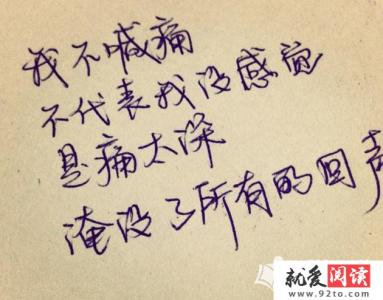 我不喊痛
不代表我没感觉
是痛太深
淹没了所有的回声
就爱阅读
www.92to.com